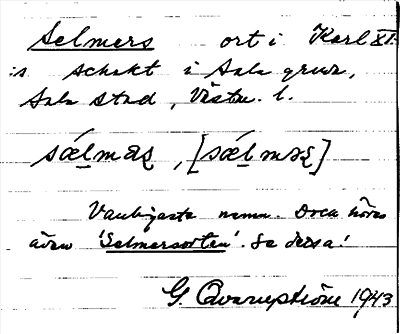 Selmers ort i Karl XI:
:s schakt i Sala gruva,
Sala stad, Västm. l.
sǽlmas̨, [sǽlməs̨]
Vanligaste namn. Orca höres
även 'Selmersorten'. Se dessa!
G. Qvarnström 1943